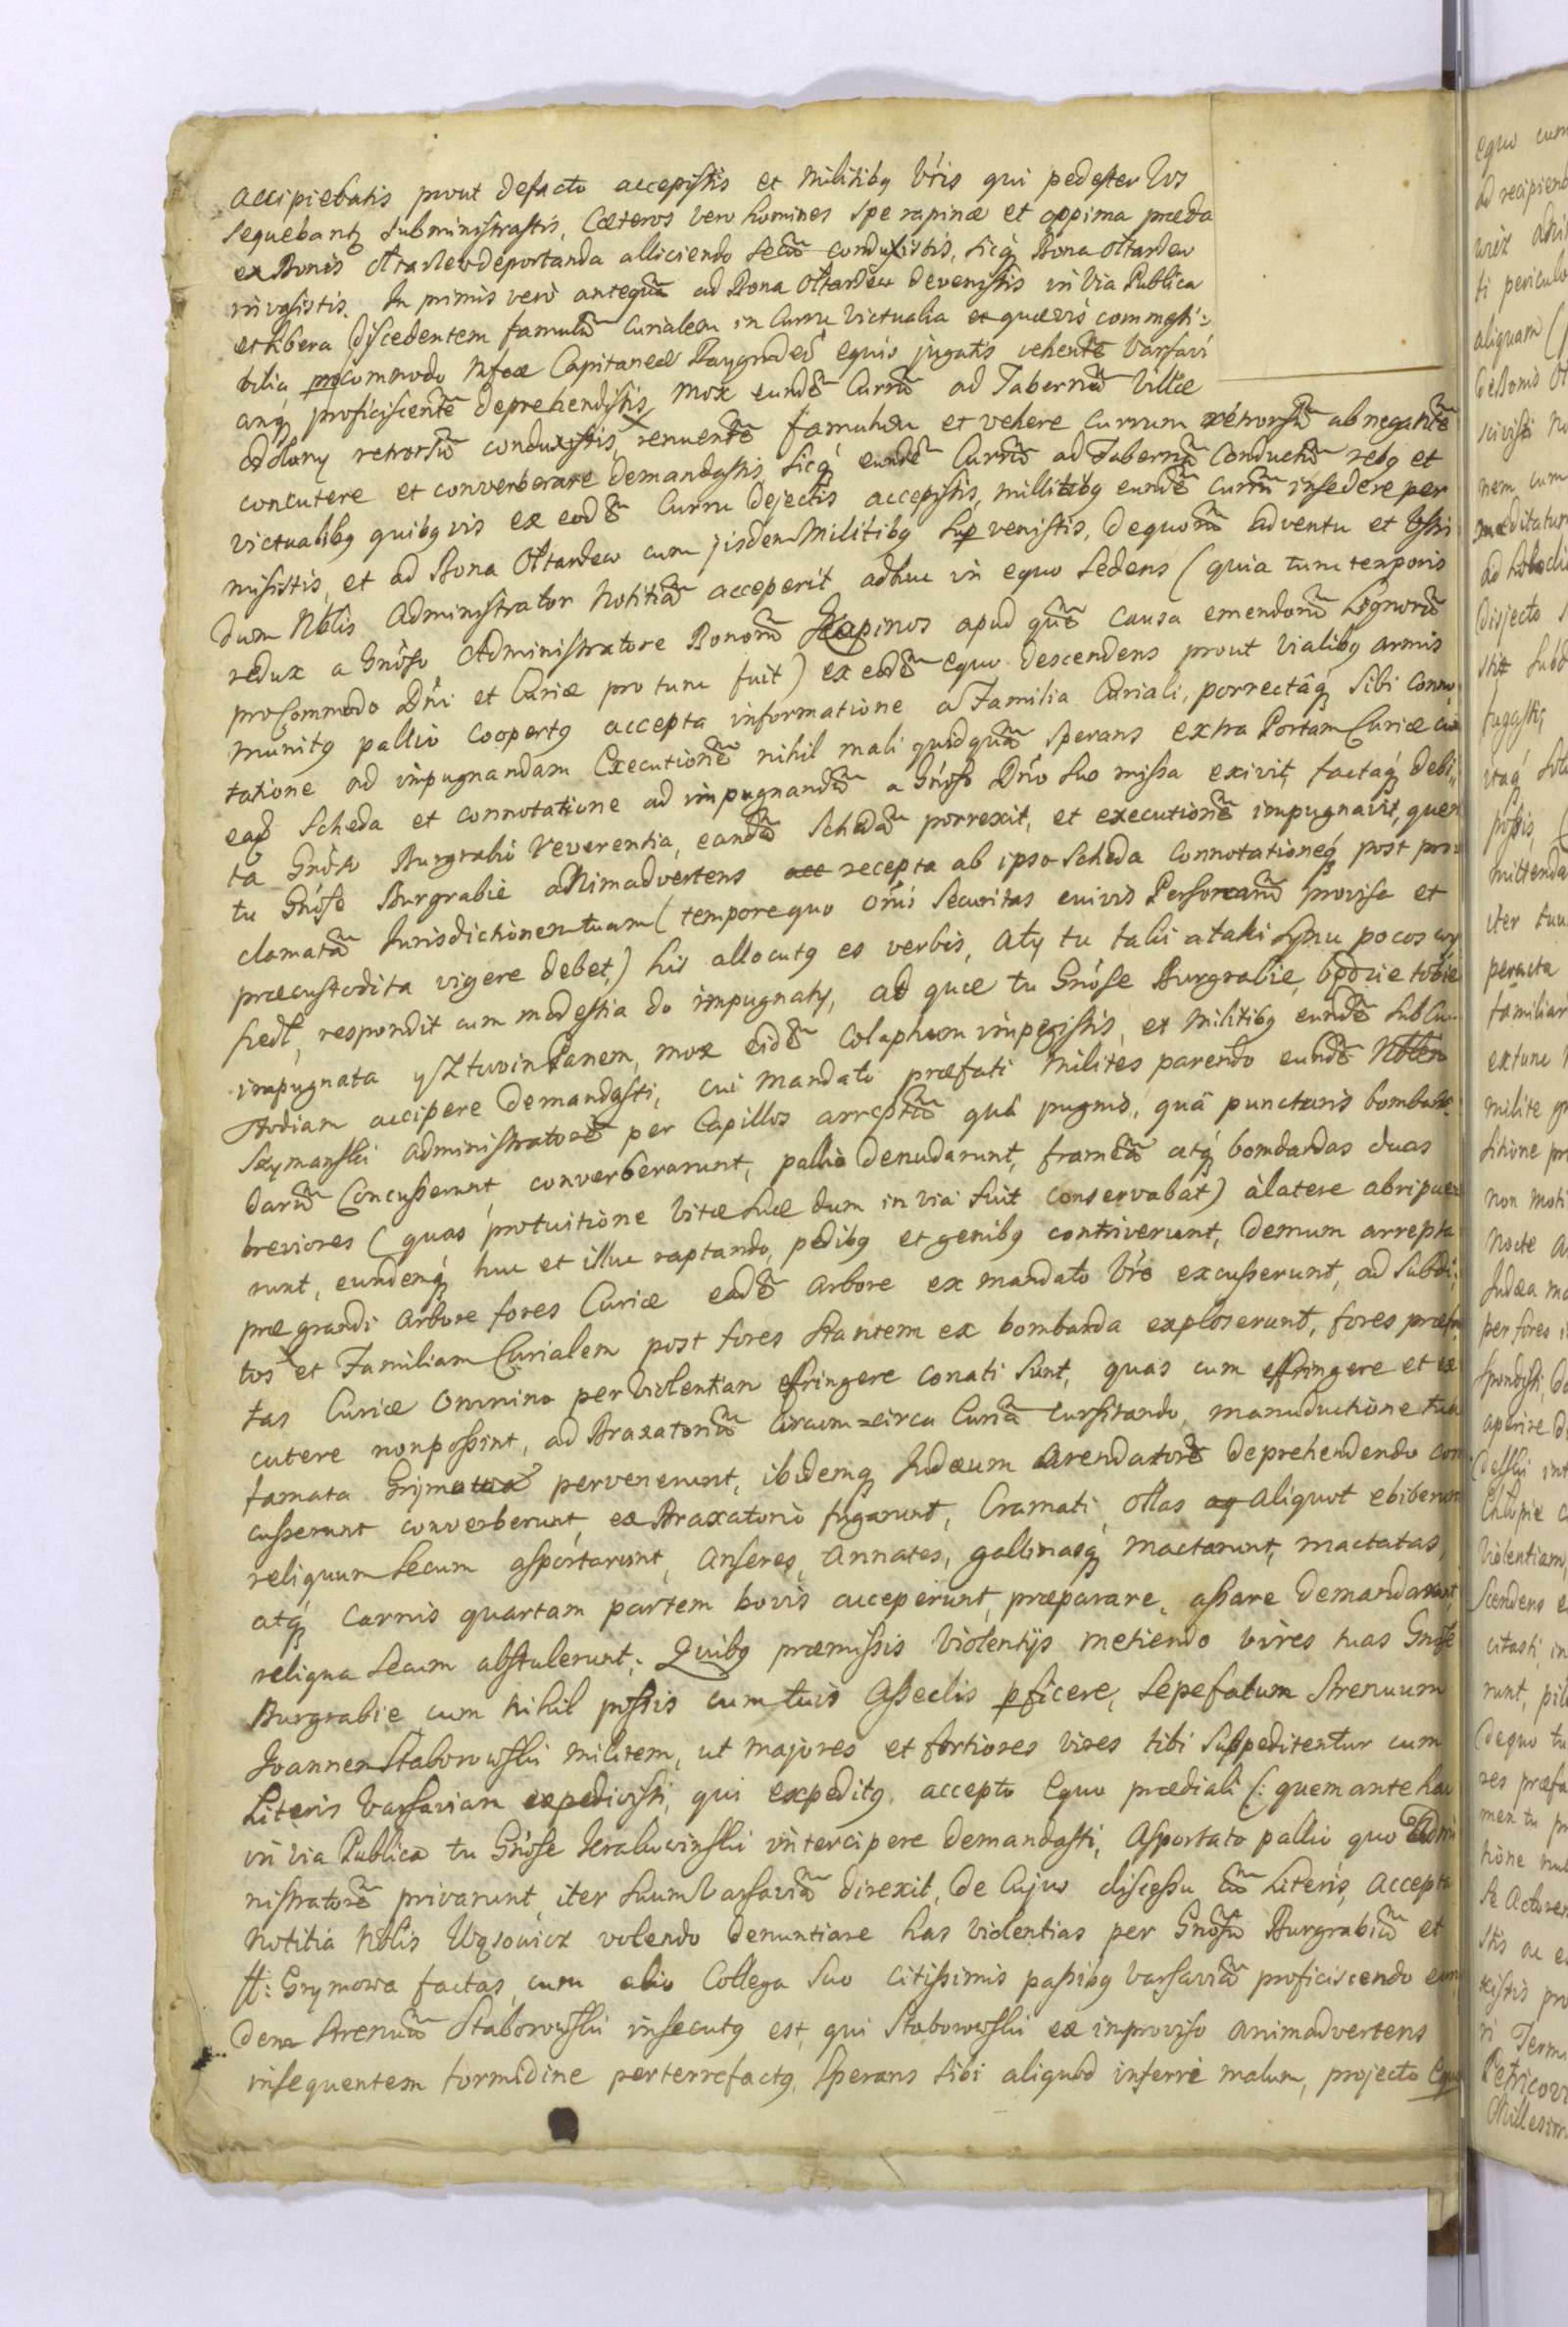 accipiebatis prout defacto accepistis et Militibq Vris qui pedester Vos
sequebantq subministrastis, Cæteros vero homines spe rapinæ et oppima præda
ex Bonis Otardew deportanda alliciendo secū conduxistis, sicq Bona Ottardew
invasistis. In primis verò antequā ad Bona Ottardew devenistis in Via Publica
et libera discedentem famulū Curialem in Curru Victualia et quævis commesti:
bilia pro commodo Mfcæ Capitaneæ Raygrodeń equis jugatis vehentē Varsavi
amq proficiscentē deprehendistis, mox eundē Currū ad Tabernā Villæ
retrorsū conduxistis, renuentē famulum et vehere Currum retrorsū abnegantē
concutere et converberare demandastis, sicq eundē Currū ad Tabernā Conductū rebq et
victualibq quibqvis ex eodē Curru dejectis accepistis, millitibq eundē currū insedere per
misistis, et ad Bona Ottardew cum jisdem Militibq sup venistis, de quorū adventu et
dum Nblis Administrator Notitiā acceperit adhuc in equo sedens (quia tunc temporis
redux a Gnoso Administratore Bonorū apud quē causa emendorū Lignorū
pro Commodo Dni et Curiæ pro tunc fuit) ex eodē equo descendens prout Vialibq armis
munitq pallio coopertq accepta informatione a Familia Curiali, porrectâq sibi Conno
tatione ad impugnandam Executionē nihil mali quidquā sperans extra Portam Curiæ cū
eaq Scheda et connotatione ad impugnandū a Gnoso Dno suo missa exivit, factaq debi:
ta Gnoso Burgrabio reverentia, eandē Schedā porrexit, et executionē impugnavit, quem
tu Gnose Burgrabie aNimadvertens acc recepta ab ipso Scheda Connotationeq post pro:
clamatā Jurisdictionem tuam (tempore quo omi securitas cuivis Personarū provisa et
præcustodita vigere debet,) his allocutq es verbis, Aty tu taki a taki Synu pocos wy
szedł, respondit cum modestia do impugnaty, ad quæ tu Gnose Burgrabie, będzie tobie
impugnata y Ztwoim Panem, mox eidē Colaphum impegistis, et Militibq eundē sub Cu
stodiam accipere demandasti, cui mandato præfati Milites parendo eundē Nblem
Szymanski Administratorē per Capillos arreptū quâ pugnis, quâ puncturis bombar:
darū Concusserunt, converberarunt, pallio denudarunt, frameā atq bombardas duas
breviores (quas pro tuitione Vitæ suæ dum in via fuit conservabat) à latere abripue
runt, eundemq huc et illuc raptando, pedibq et genibq contriverunt, demum arrepta
prægrandi Arbore fores Curiæ eadē Arbore ex mandato Vro excusserunt, ad Subdi:
tos et Familiam Curialem post fores stantem ex bombarda exploserunt, fores præfa
tas Curiæ omnino per violentiam effringere conati sunt, quas cum effringere et ex
cutere non possint, ad Braxatoriū Circum=circa Curiā cursitando, manuductione tua
famata Grymowa pervenerunt, ibidemq Judæum Arendatorē deprehendendo con
cusserunt converberunt, ex Braxatorio fugarunt, Cramati ollas aq aliquot ebiberunt
reliquum secum asportarunt, Anseres, Annates, gallinasq mactarunt, mactatas,
atq Carnis quartam partem bovis acceperunt, præparare, assare demandarunt,
reliqua secum abstulerunt. Quibq præmissis Violentijs metiendo vires tuas Gnose
Burgrabie cum nihil possis cum tuis Asseclis pficere, sepefatum Strenuum
Joannem Staborowski Militem, ut majores et fortiores vires tibi suppeditentur cum
Literis Varsaviam expedivisti, qui expeditq, accepto Equo prædiali (: quem ante hac
in via Publica tu Gnose Krakowinski intercipere demandasti, Asportato pallio quo Admi
nistratorē privarunt, iter suum Varsaviā direxit, de Cujus discessu cū Literis, accepta
Notitia Nblis Wąsowicz volendo denuntiare has violentias per Gnosū Burgrabiū et
ff: Grymowa factas, cum alio Collega suo citissimis passibq Varsaviā proficiscendo eun
dem Strenuū Staborowski insecutq est, qui Staborowski ex improviso animadvertens
insequentem formidine perterrefactq, sperans sibi aliquod inferri malum, projecto Equo